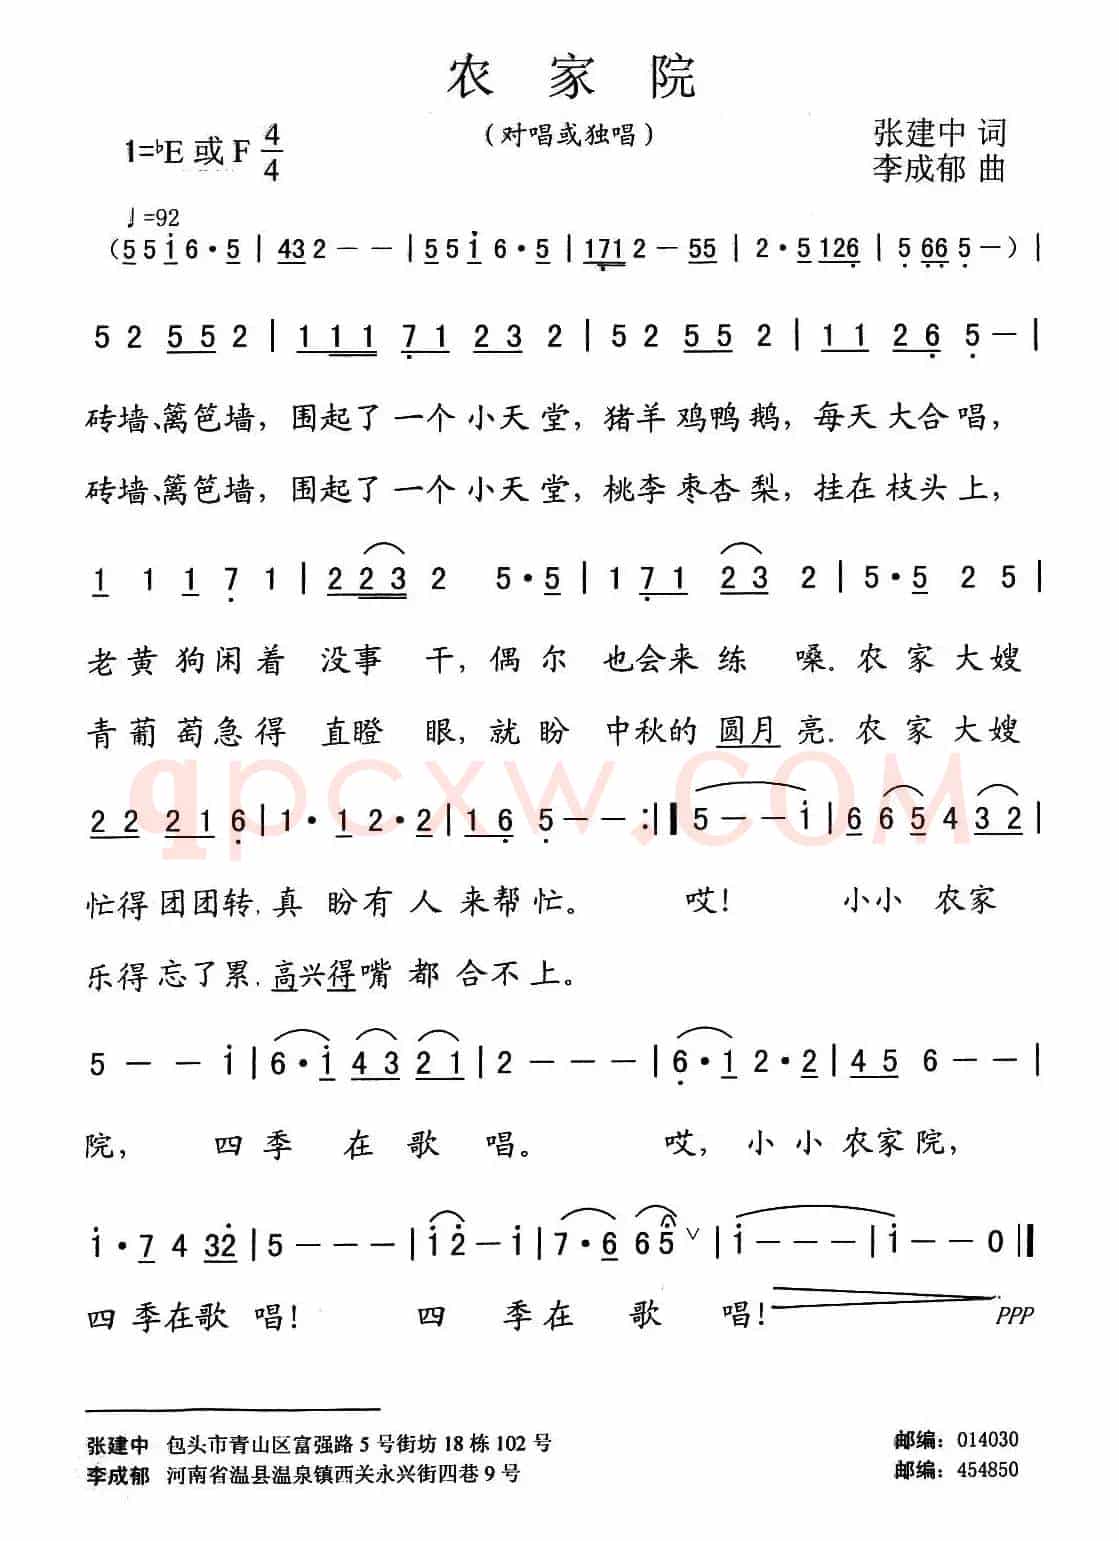 农家院
（对唱或独唱）
1=♭E 或 F 4/4
张建中 词
李成郁 曲
♩=92
（5 5 i 6 · 5 | 43 2 — — | 5 5 i 6 · 5 | 171 2 — 55 | 2 · 5 126 | 5 66 5 — ）|
5 2 5 5 2 | 1 1 1 7 1 2 3 2 | 5 2 5 5 2 | 1 1 2 6 5 — |
砖墙、篱笆墙，围起了一个小天堂，猪羊鸡鸭鹅，每天大合唱，
砖墙、篱笆墙，围起了一个小天堂，桃李枣杏梨，挂在枝头上，
1 1 1 7 1 | 2 2 3 2 5 · 5 | 1 7 1 2 3 2 | 5 · 5 2 5 |
老黄狗闲着没事干，偶尔也会来练嗓．农家大嫂
青葡萄急得直瞪眼，就盼中秋的圆月亮．农家大嫂
qpcxw.COM
2 2 2 1 6 | 1 · 1 2 · 2 | 1 6 5 — — :‖ 5 — — i | 6 6 5 4 3 2 |
忙得团团转，真盼有人来帮忙。哎！小小农家
乐得忘了累，高兴得嘴都合不上。
5 — — i | 6 · i 4 3 2 1 | 2 — — — | 6 · 1 2 · 2 | 4 5 6 — — |
院，四季在歌唱。哎，小小农家院，
i · 7 4 3 2 | 5 — — — | i 2 — i | 7 · 6 6 5 ∨ | i — — — | i — — 0 ‖
四季在歌唱！四季在歌唱！ ppp
张建中 包头市青山区富强路 5 号街坊 18 栋 102 号 邮编：014030
李成郁 河南省温县温泉镇西关永兴街四巷 9 号 邮编：454850